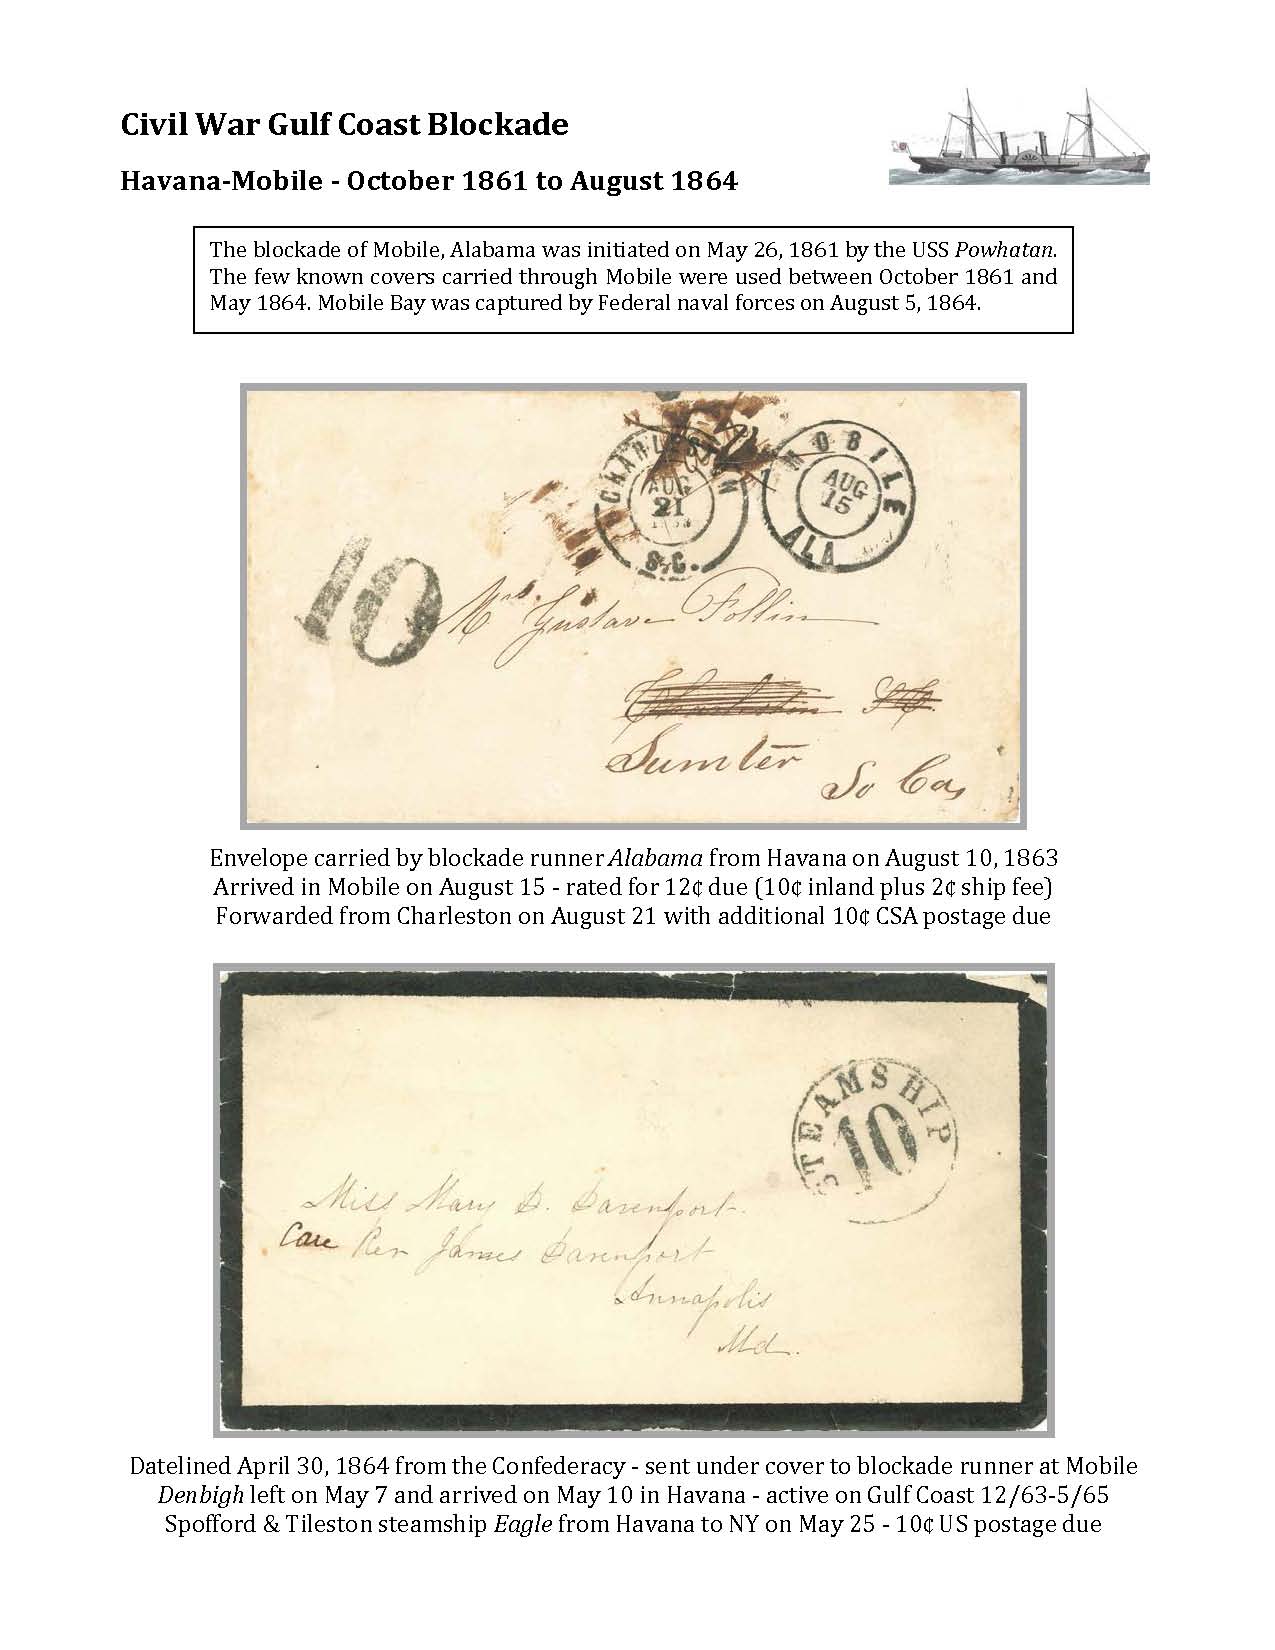 Civil War Gulf Coast Blockade
Havana-Mobile - October 1861 to August 1864
The blockade of Mobile, Alabama was initiated on May 26, 1861 by the USS Powhatan.
The few known covers carried through Mobile were used between October 1861 and
May 1864. Mobile Bay was captured by Federal naval forces on August 5, 1864.
CHARLESTON
AUG
21
S.C.
MOBILE
AUG
15
ALA
10
Mrs. Gustave Follin
Charleston SC.
Sumter
So Ca,
Envelope carried by blockade runner Alabama from Havana on August 10, 1863
Arrived in Mobile on August 15 - rated for 12¢ due (10¢ inland plus 2¢ ship fee)
Forwarded from Charleston on August 21 with additional 10¢ CSA postage due
STEAMSHIP
10
Miss Mary D. Davenport.
Care Rev James Davenport
Annapolis
Md.
Datelined April 30, 1864 from the Confederacy - sent under cover to blockade runner at Mobile
Denbigh left on May 7 and arrived on May 10 in Havana - active on Gulf Coast 12/63-5/65
Spofford & Tileston steamship Eagle from Havana to NY on May 25 - 10¢ US postage due